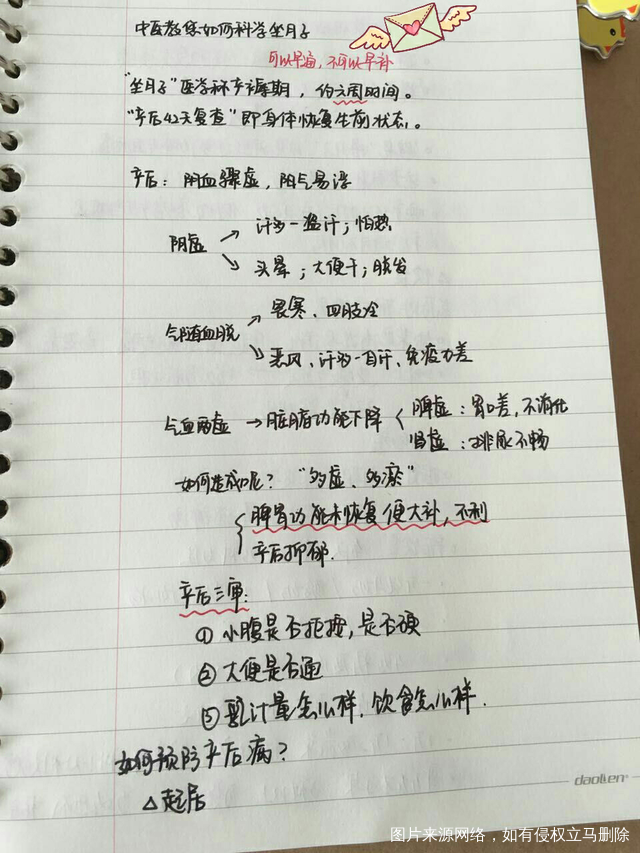 中医教您如何科学坐月子
可以早通，不可以早补
"坐月子"医学称产褥期，约六周时间。
"产后42天复查"即身体恢复生前状态。
产后：阴血骤虚，阳气易浮
阴虚 → 汗多-盗汗；怕热
→ 头晕；大便干；脱发
气随血脱 → 畏寒、四肢冷
→ 恶风、汗多-自汗、免疫力差
气血两虚 → 脏腑功能下降 { 脾虚：胃口差，不消化
肾虚：排尿不畅
如何造成呢？"多虚、多瘀"
{ 脾胃功能未恢复便大补，不利
产后抑郁.
产后三审:
① 小腹是否拒按，是否硬
② 大便是否通
③ 乳汁量怎么样，饮食怎么样.
如何预防产后病？
△起居
daolien®
图片来源网络，如有侵权立马删除